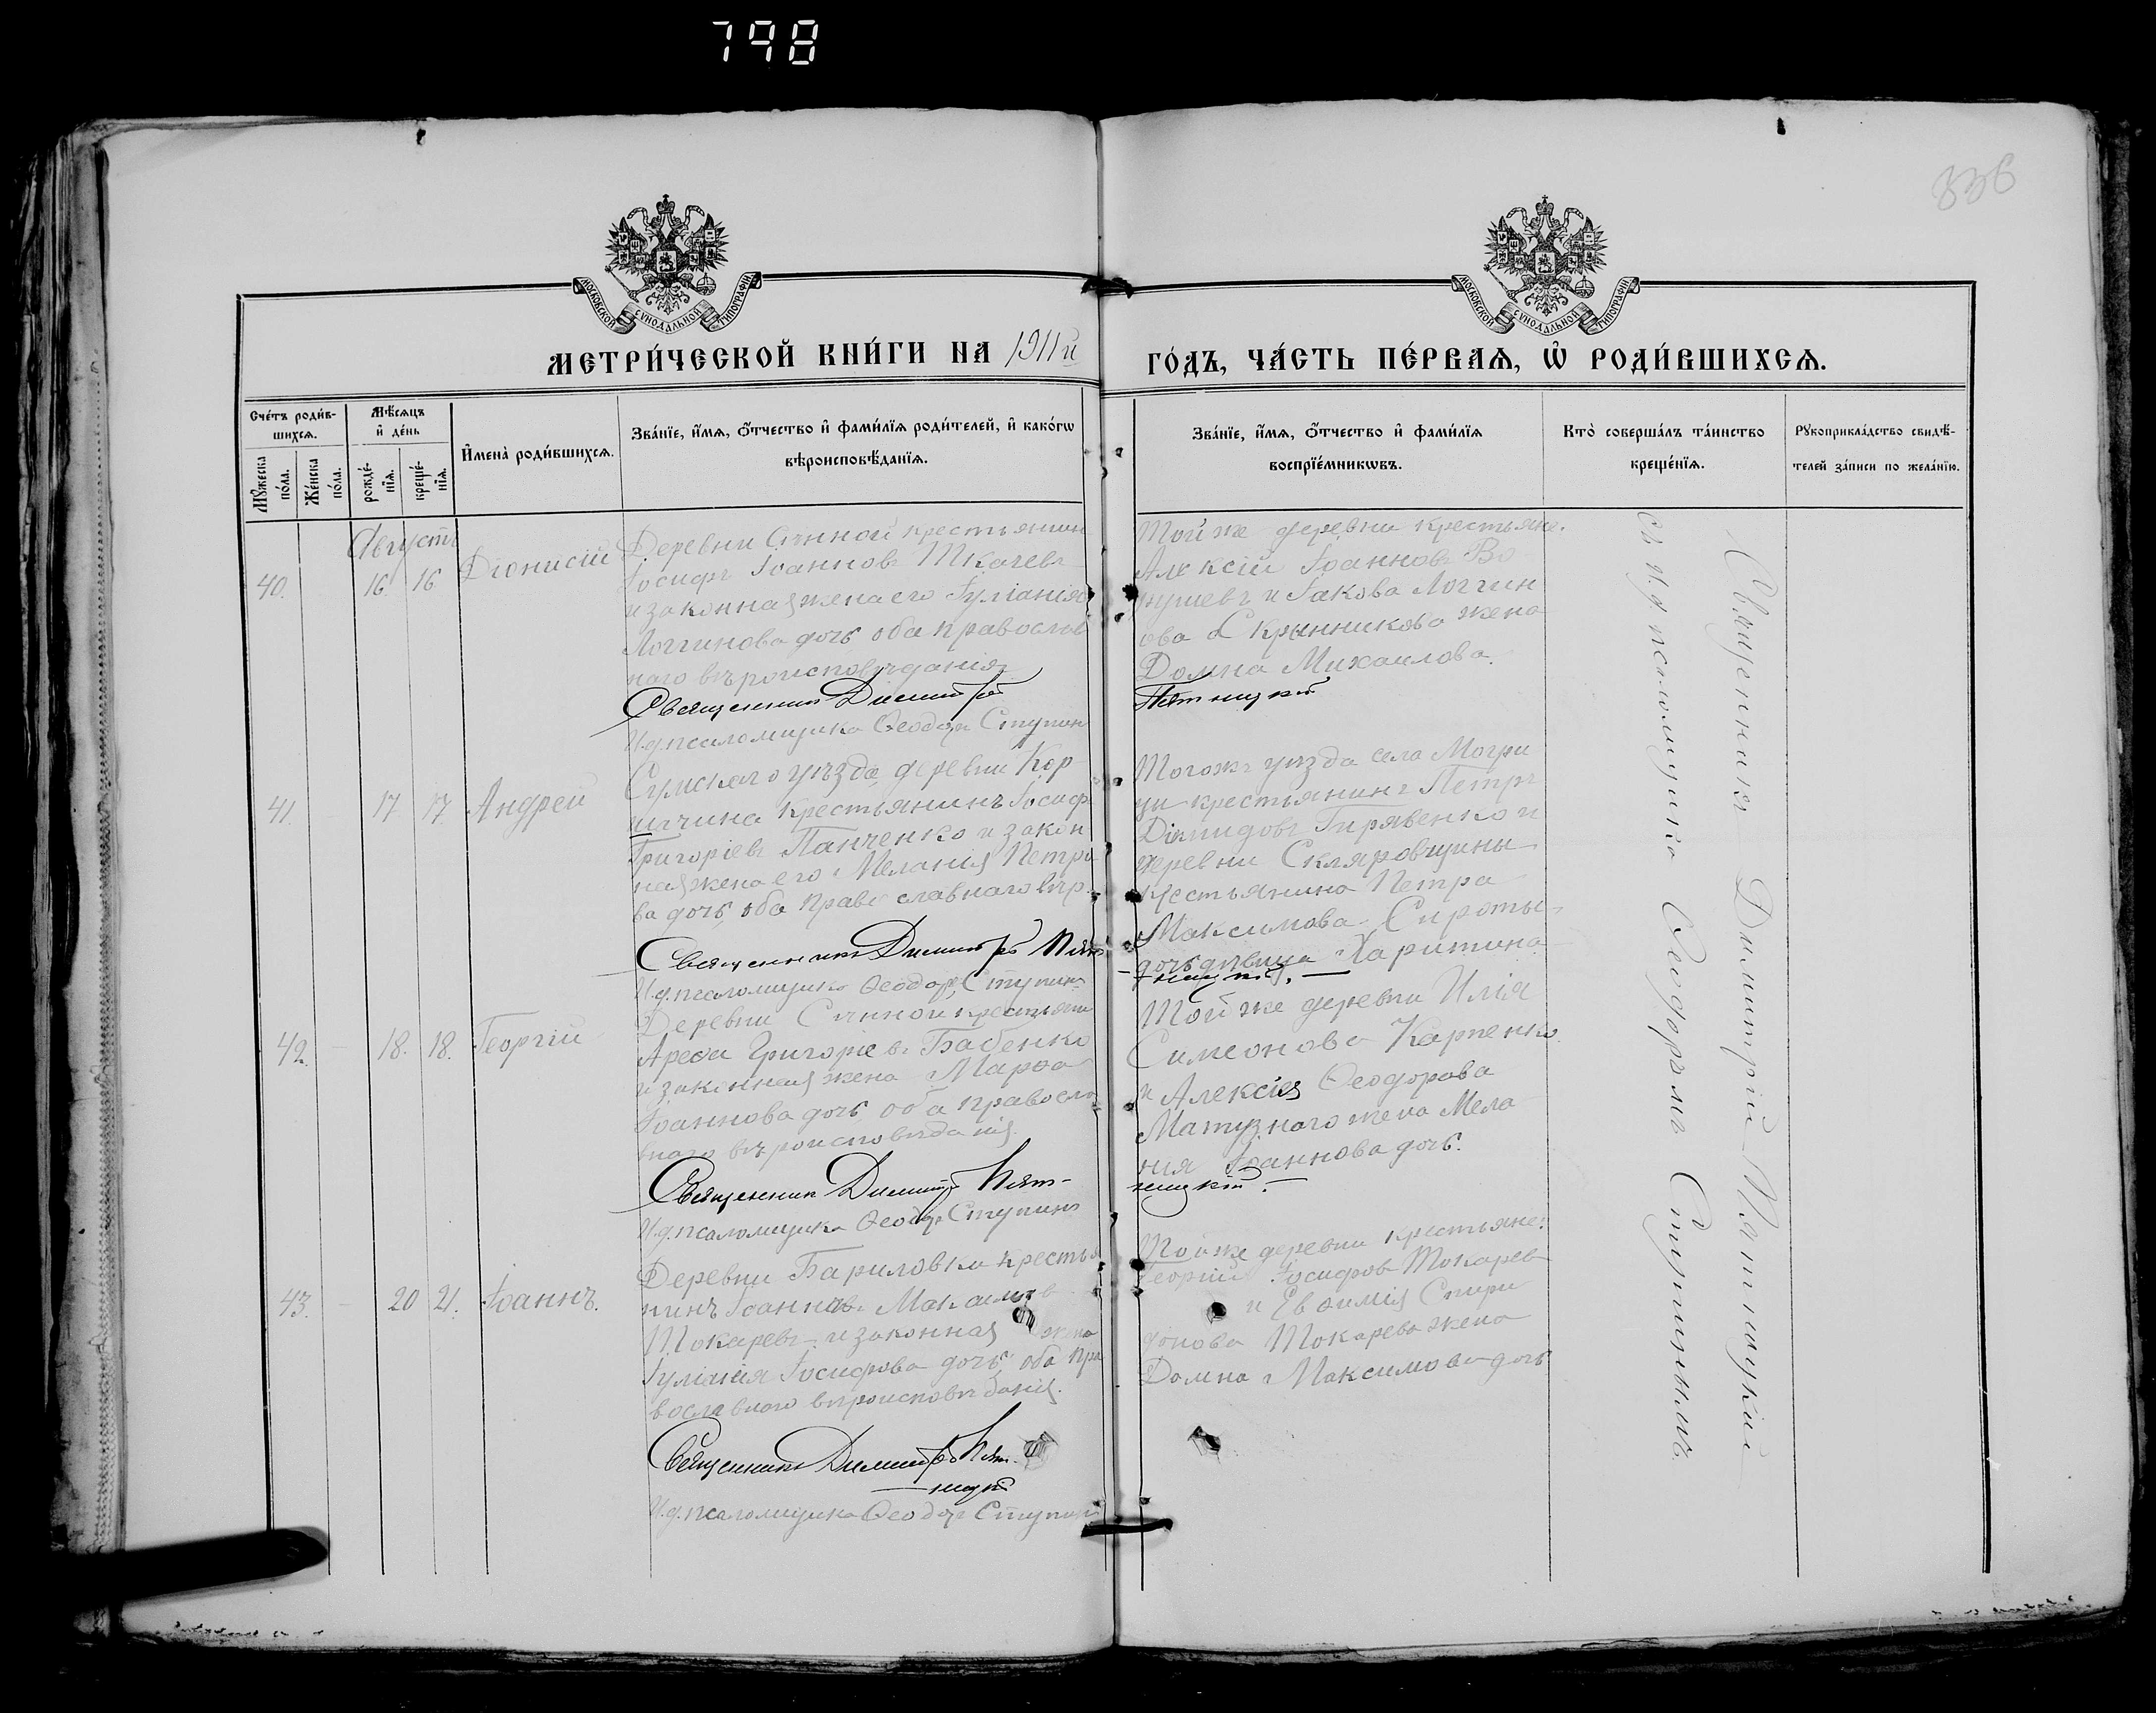 798
336
МОСКОВСКОЙ СѴНОДАЛЬНОЙ ТИПОГРАФІИ
МОСКОВСКОЙ СѴНОДАЛЬНОЙ ТИПОГРАФІИ
МЕТРИ́ЧЕСКОЙ КНИ́ГИ НА 1911й
ГО́ДЪ, ЧА́СТЬ ПЕ́РВАѦ, Ѡ҆ РОДИ́ВШИХСѦ.
Сче́тъ роди́в-
шихсѧ.
Мꙋ́жеска по́ла.
Же́нска по́ла.
Мѣ́сѧцъ
и҆ де́нь
рожде́-
нїѧ.
креще́-
нїѧ.
И҆мена̀ роди́вшихсѧ.
Зва́нїе, и҆́мѧ, ѻ҆́тчество и҆ фами́лїѧ роди́телей, и҆ како́гѡ
вѣроисповѣ́данїѧ.
Зва́нїе, и҆́мѧ, ѻ҆́тчество и҆ фами́лїѧ
воспрїе́мникѡвъ.
Кто̀ соверша́лъ та́инство
креще́нїѧ.
Рꙋкоприкла́дство свидѣ́-
телей за́писи по жела́нїю.
Августъ
40. 16. 16 Діонисій
Деревни Сѣнной крестьянин
Іосифъ Іоанновъ Ткачевъ
и законная жена его Іуліанія
Логгинова дочь оба православ
наго вѣроисповѣданія
Священникъ Димитрій
И.д.псаломщика Ѳеодоръ Ступин
Той же деревни крестьяне.
Алексій Іоанновъ Во
рушевъ и Іакова Логгин
ова Скрынникова жена
Домна Михаилова.
Пятницкій
41. 17 17. Андрей
Сумскаго уѣзда, деревни Кор
шачина крестьянинъ Іосиф
Григоріевъ Панченко и закон
ная жена его Меланія Петро
ва дочь, оба православнаго вѣр.
Священникъ Димитрій Пят
И.д.псаломщика Ѳеодоръ Ступинъ
Тогожъ уѣзда села Могри
цы крестьянинъ Петръ
Гирявенко и
деревни Скляровщины
крестьянина Петра
Максимова Сироты
дочь дѣвица Харитина
ницкій.
42. – 18. 18. Георгій
Деревни Сѣнной крестьяни
Арефа Григоріевъ Бабенко
и законная жена Марфа
Іоаннова дочь, оба правосла
внаго вѣроисповѣданія.
Священникъ Димитрій Пят-
И.д.псаломщика Ѳеодоръ Ступинъ
Той же деревни Илія
Симеоновъ Карпенко
и Алексія Ѳеодорова
Матузнаго жена Мела
нія Іоаннова дочь.
ницкій.
43. – 20 21. Іоаннъ.
Деревни Бариловки крестья
нинъ Іоанновъ Максимов
Токаревъ и законная жена
Іуліанія Іосифова дочь, оба пра
вославнаго вѣроисповѣданія.
Священникъ Димитрій Пят-
ницкій
И.д.псаломщика Ѳеодоръ Ступинъ
Той же деревни крестьяне:
Георгій Іосифовъ Токарев
и Евфимія Спири
донова Токарева жена
Домна Максимова дочь
Священникъ Димитрій Пятницкій
Съ и.д. псаломщика Ѳеодоромъ Ступинымъ.